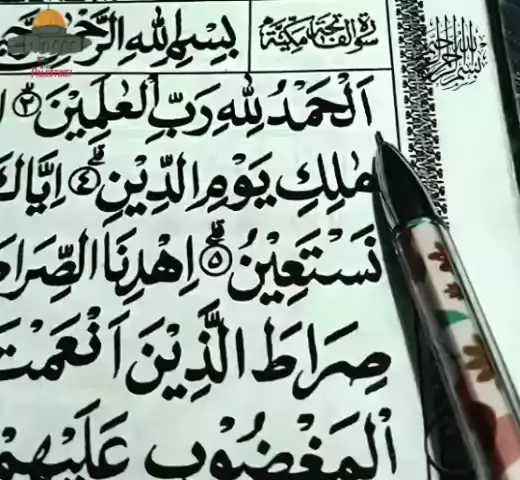 سورة الفاتحة مكية
بِسْمِ اللهِ الرَّحْمٰنِ
اَلْحَمْدُ لِلّٰهِ رَبِّ الْعٰلَمِيْنَ ۙ﴿۲﴾
مٰلِكِ يَوْمِ الدِّيْنِ ؕ﴿۴﴾ اِيَّاكَ
نَسْتَعِيْنُ ؕ﴿۵﴾ اِهْدِنَا الصِّرَاطَ
صِرَاطَ الَّذِيْنَ اَنْعَمْتَ
الْمَغْضُوْبِ عَلَيْهِمْ